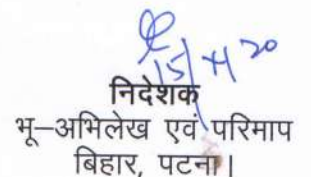 15/4/20
निदेशक
भू–अभिलेख एवं परिमाप
बिहार, पटना।